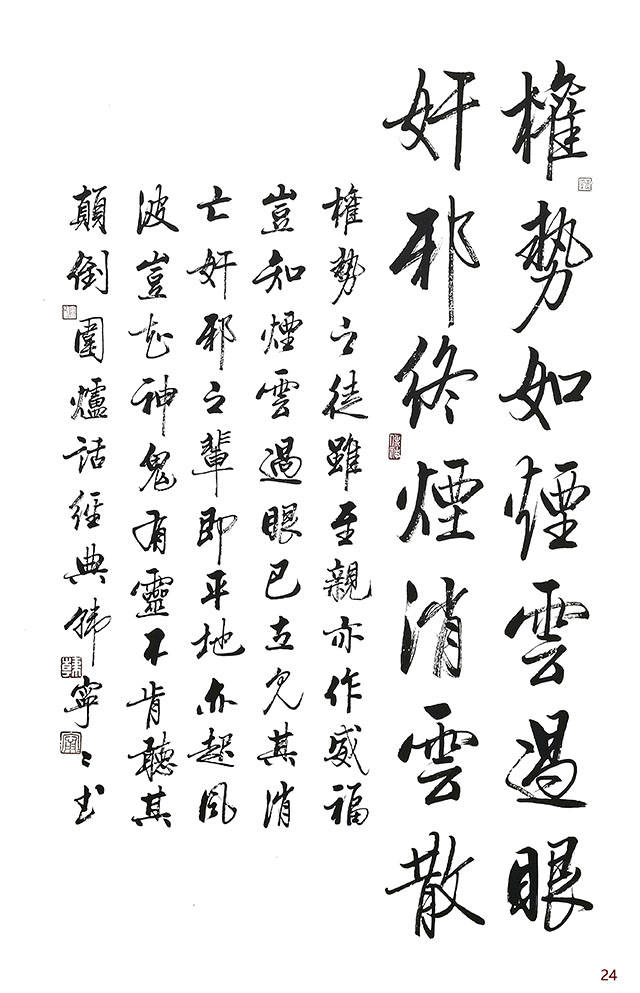 權勢如煙雲過眼
奸邪終煙消雲散
權勢之徒雖至親亦作威福
豈知煙雲過眼已立見其消
亡奸邪之輩即平地亦起風
波豈知神鬼有靈不肯聽其
顛倒圍爐話經典韓寧寧書
24